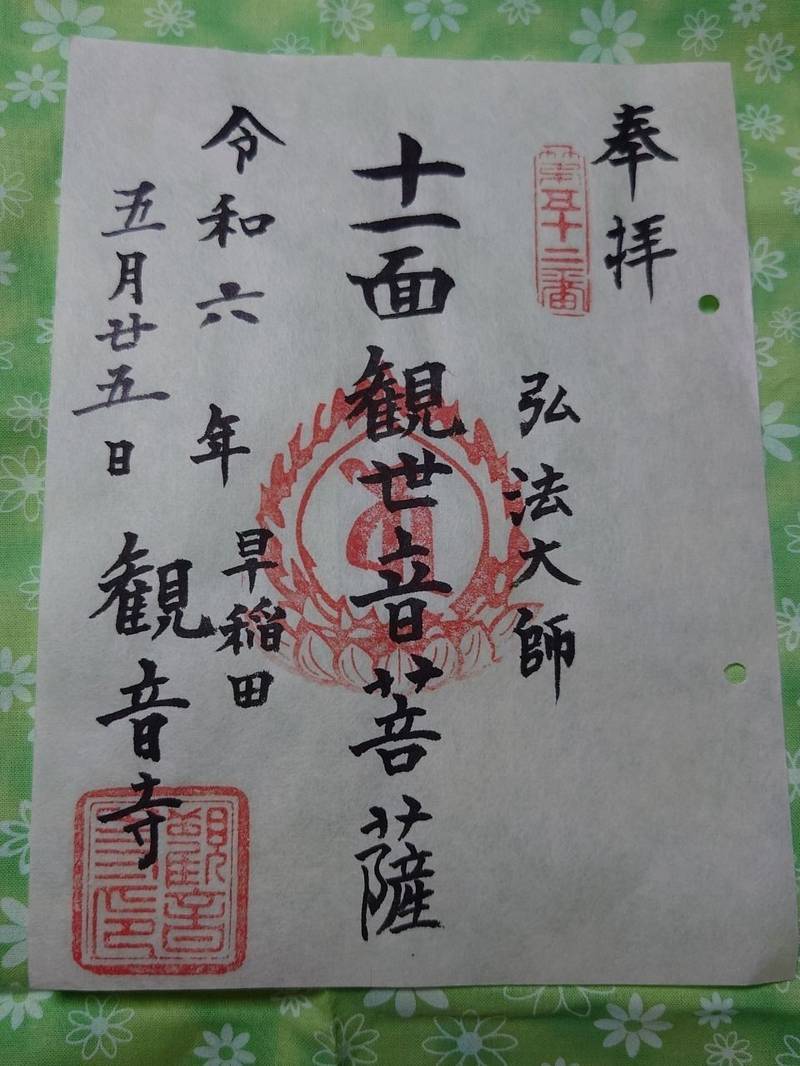 奉拝
第五十二番
弘法大師
十一面観世音菩薩
令和六年
早稲田
五月廿五日
観音寺